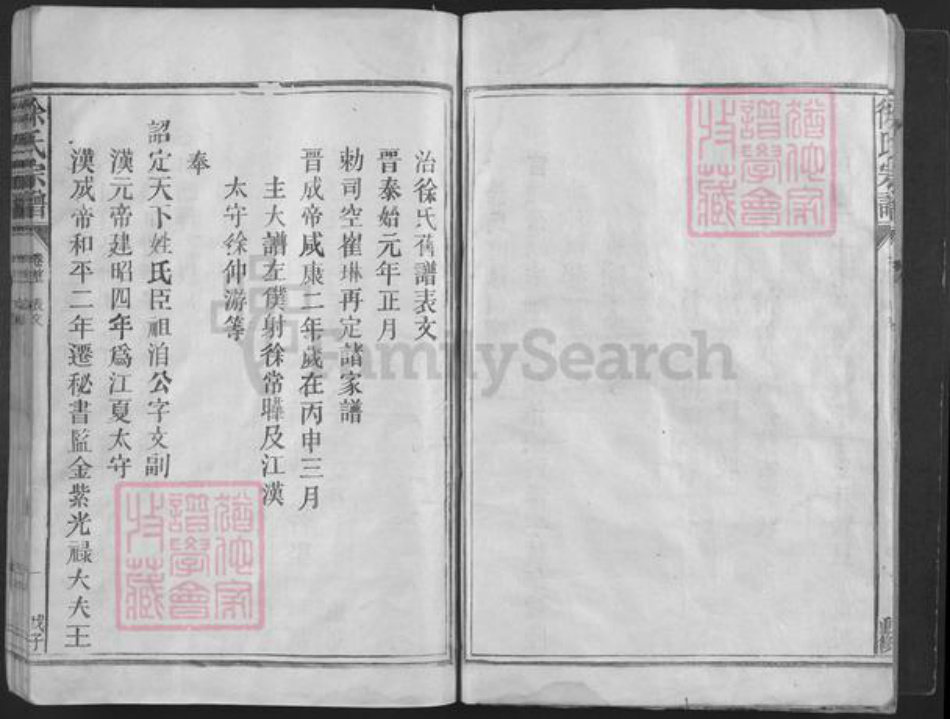 徐氏宗譜
治徐氏舊譜表文
晋泰始元年正月
勅司空崔琳再定諸家譜
晋成帝咸康二年歲在丙申三月
主大譜左僕射徐常曄及江漢
太守徐仲游等
奉
詔定天下姓氏臣祖洎公字文副
漢元帝建昭四年爲江夏太守
漢成帝和平二年遷秘書監金紫光祿大夫王
徐氏宗譜
卷首
表文
一
戊子
譜學會
收藏
譜學會
收藏
FamilySearch